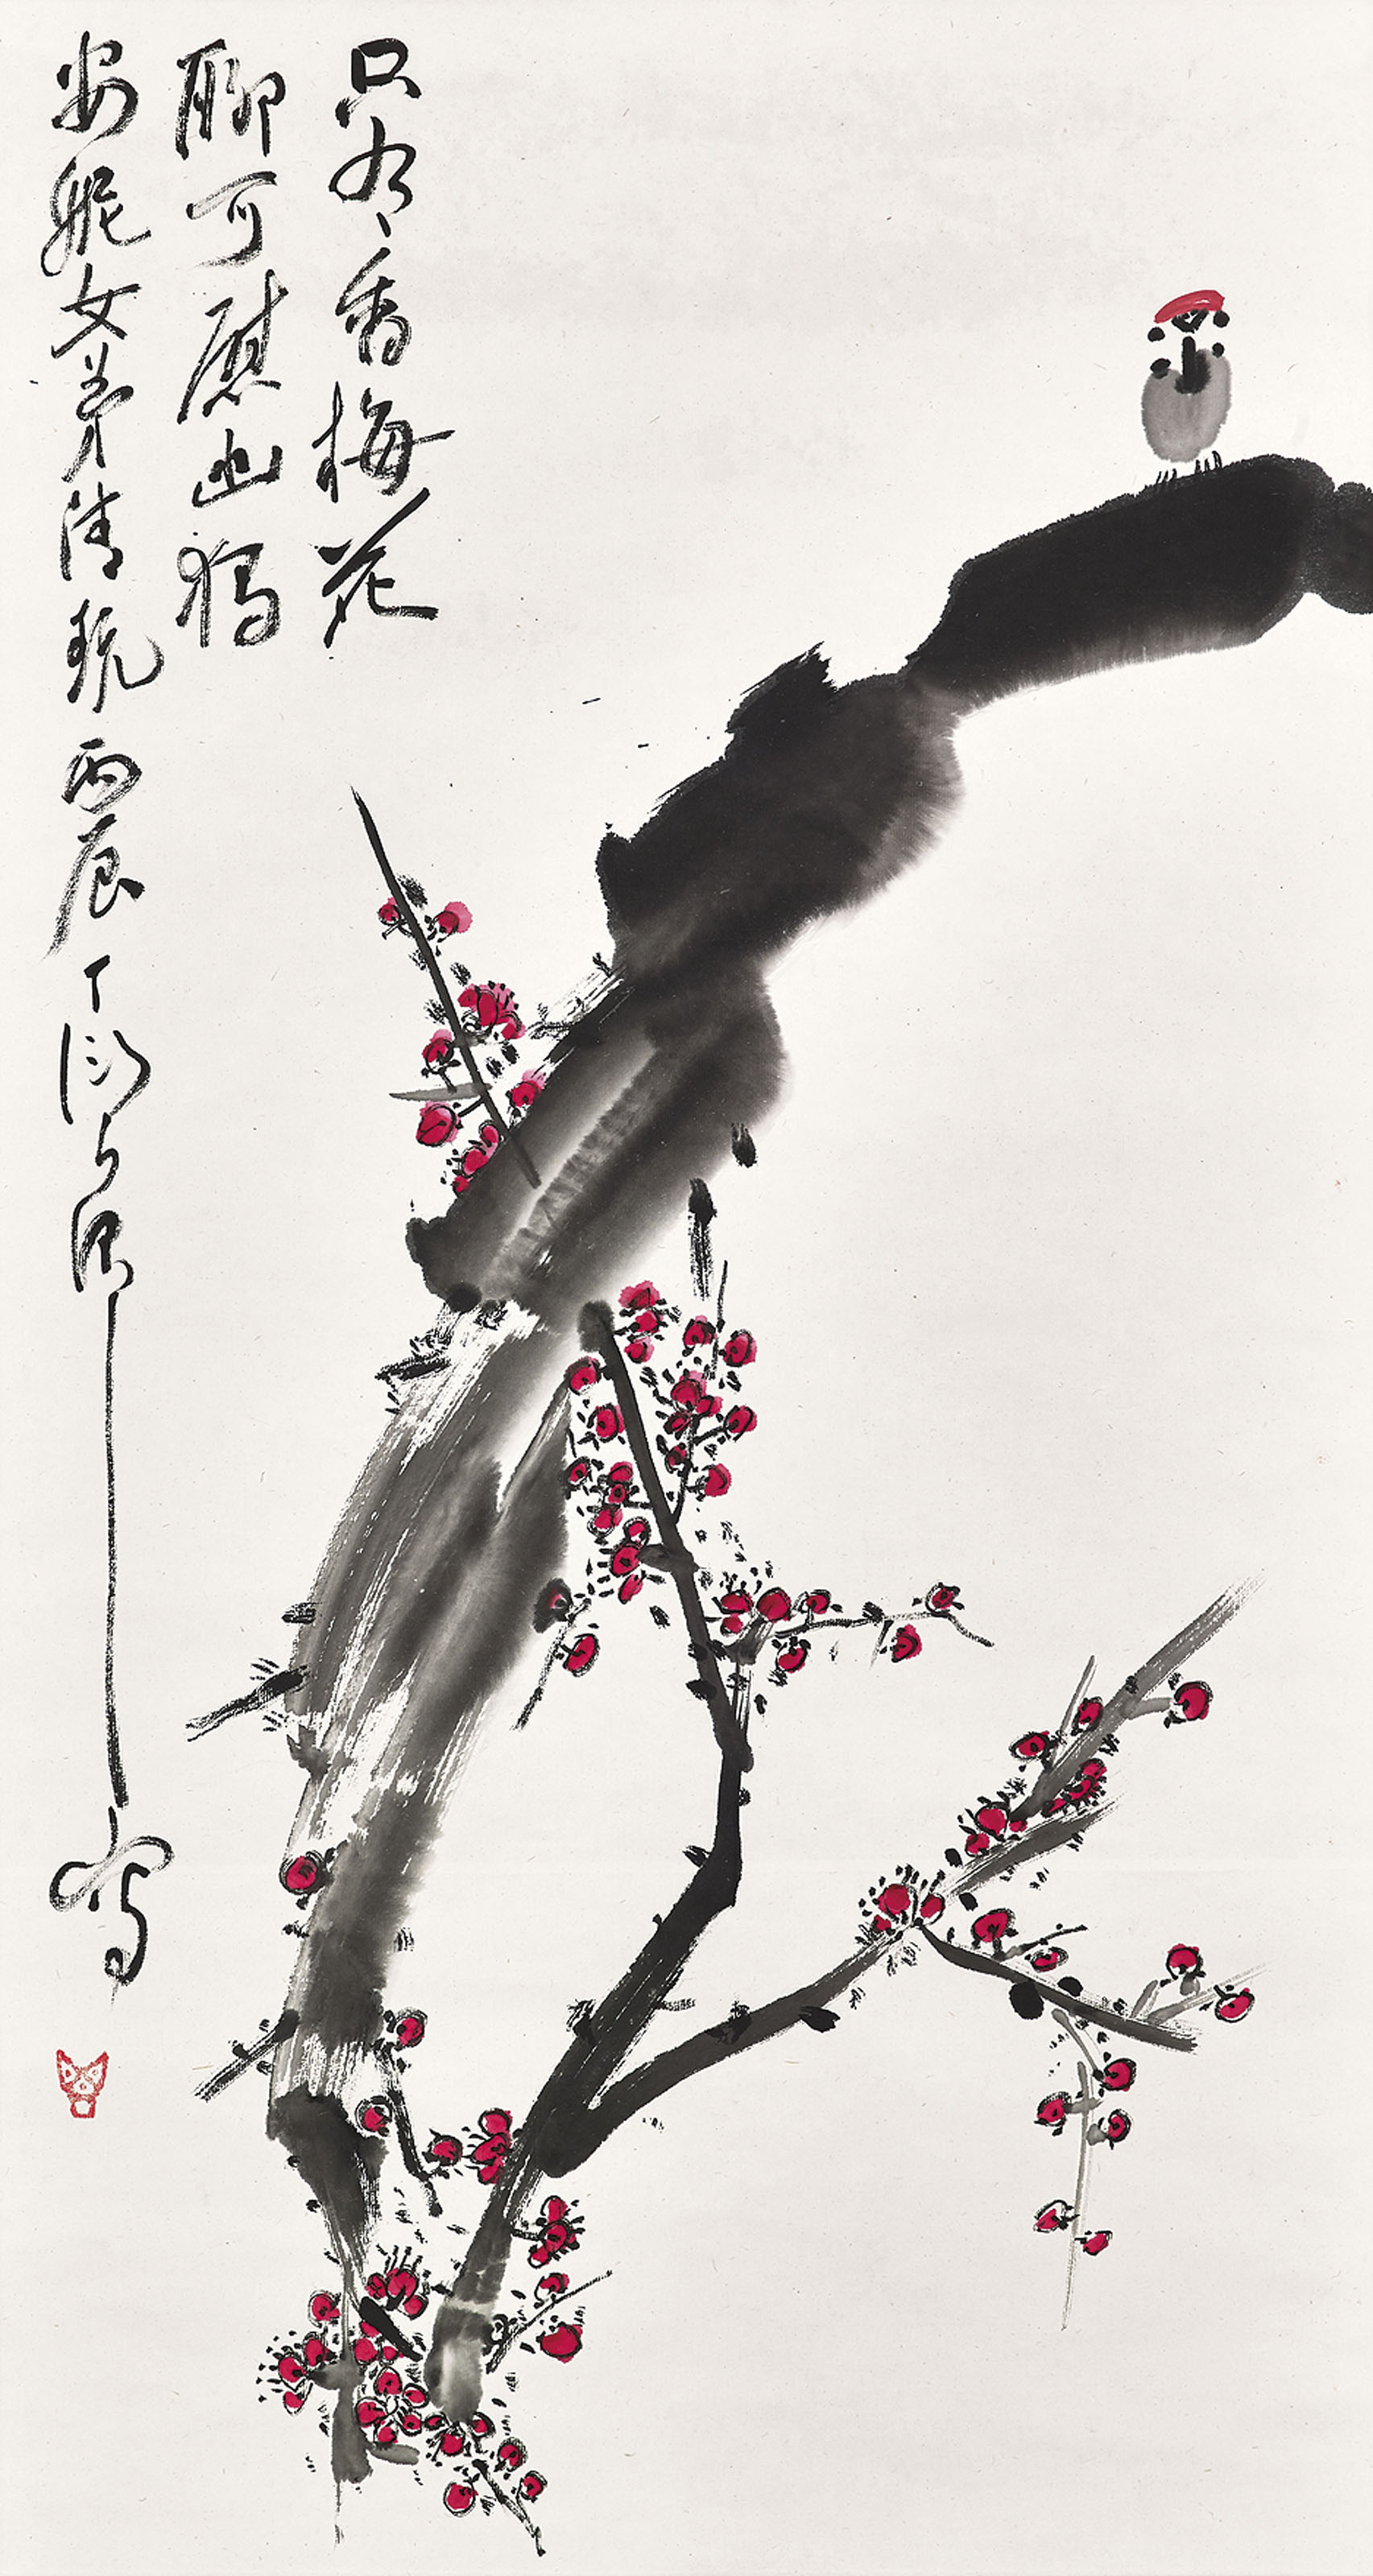 只有香梅花
聊可慰幽獨
安妮女弟清玩 丙辰 丁衍庸寫